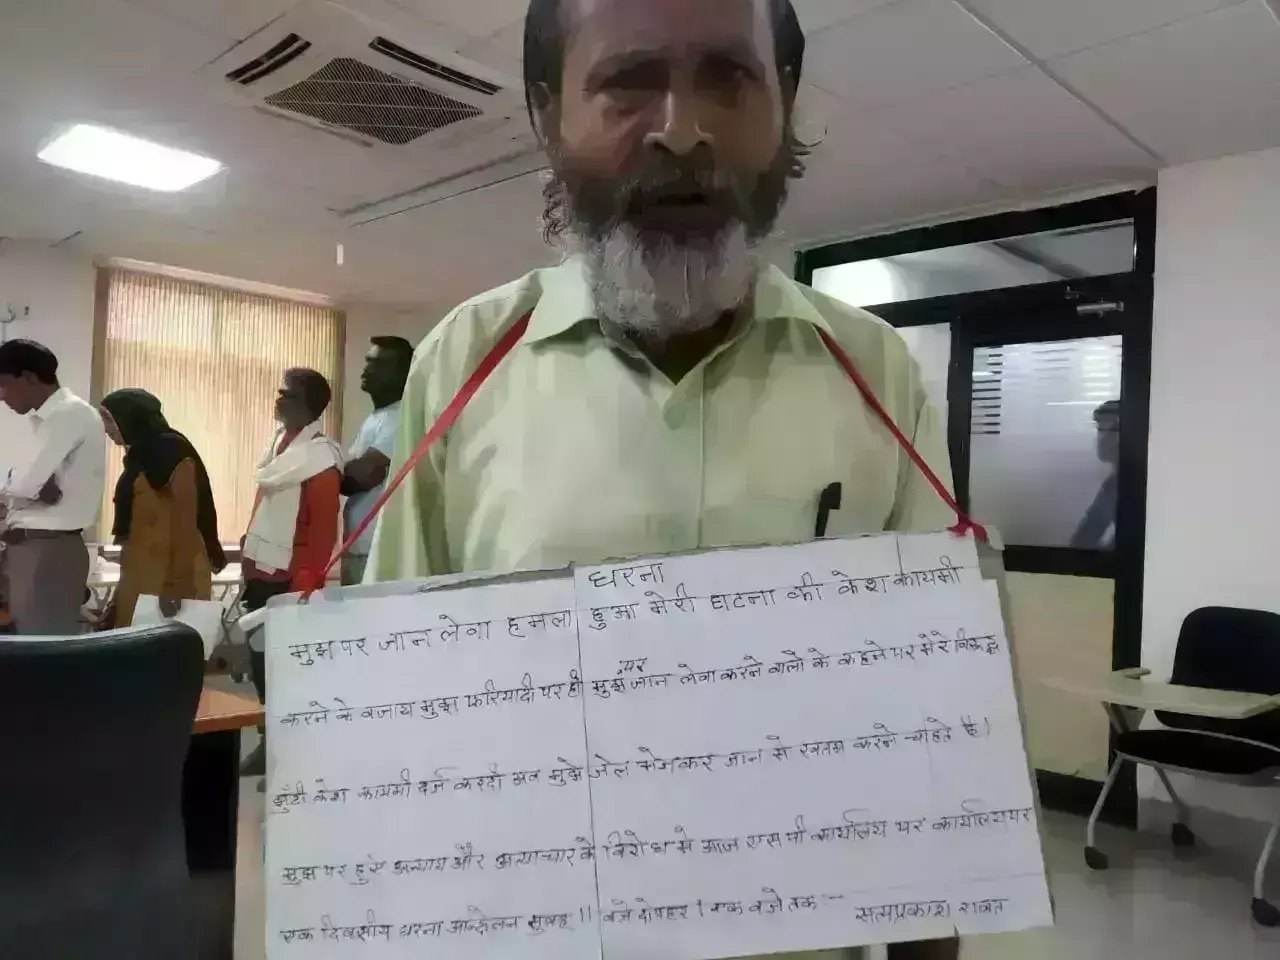 धरना
मुझ पर जान लेवा हमला हुआ मेरी घटना की केश कायमी
करने के वजाय मुझ फरियादी पर ही मुझ पर जान लेवा करने वालो के कहने पर मेरे विरूद्ध
झुठी केश कायमी दर्ज करदी अब मुझे जेल भेजकर जान से खतम करने चाहते है।
मुझ पर हुए अन्याय और अत्याचार के विरोध मे आज एस पी कार्यालय पर कार्यालय पर
एक दिवसीय धरना आन्दोलन सुबह 11 बजे दोपहर 1 एक बजे तक :-
सत्यप्रकाश रावत